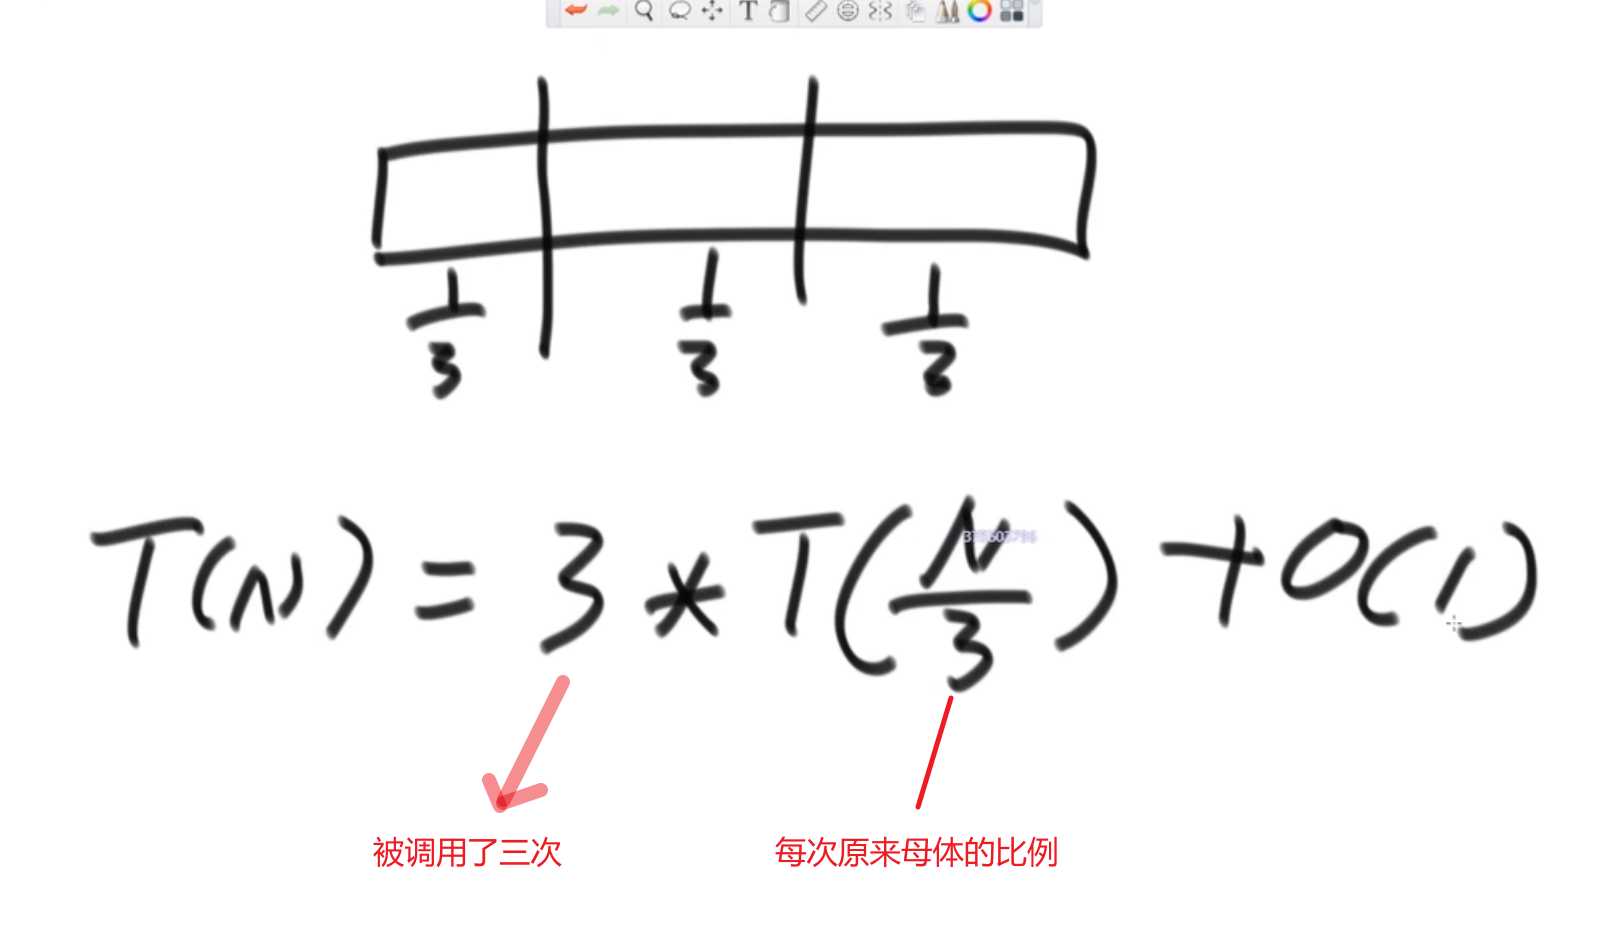 1/3 1/3 1/3
T(N) = 3 * T(N/3) + O(1)
被调用了三次 每次原来母体的比例